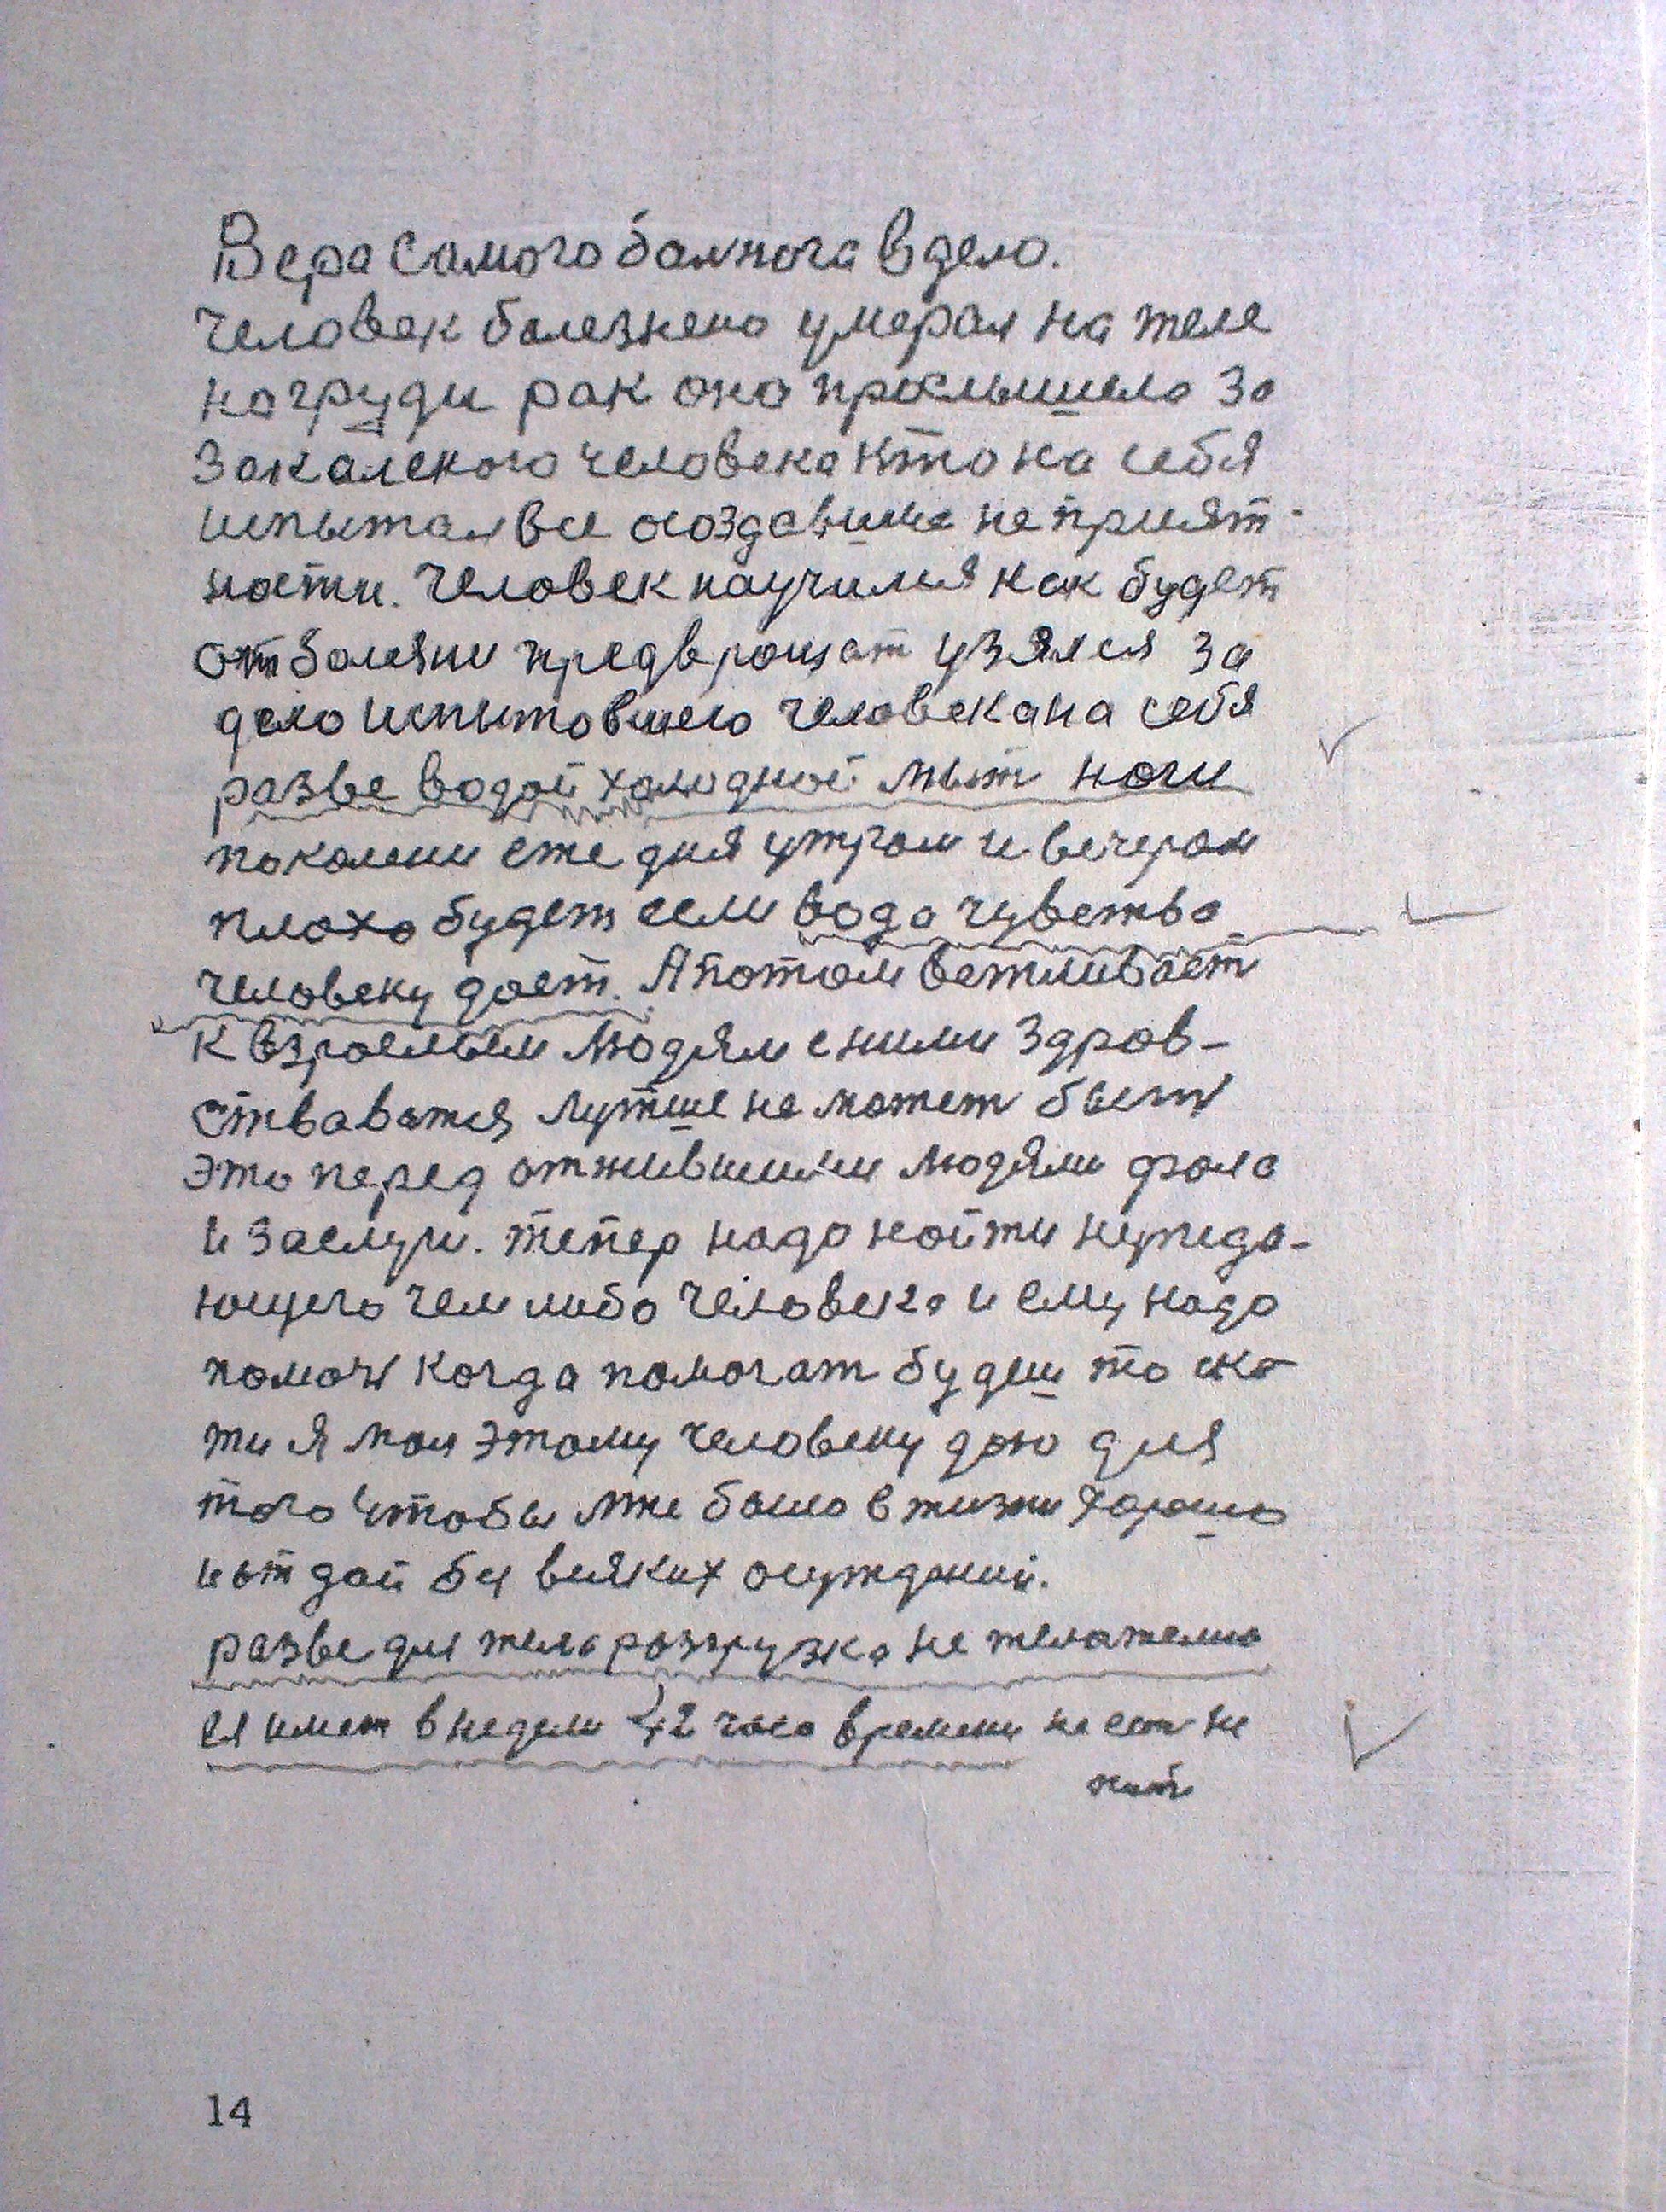 Вера самого болного в дело.
Человек болезнено умерал на теле
на груди рак она прослышела за
закаленого человека кто на себя
испытал все создавшие неприят-
ности. Человек научился как будет
от болезни предврощат узялся за
дело испытовшего человека на себя
разве водой холодной мыт ноги
по колени еже дня утром и вечером
плохо будет если вода чувство
человеку дает. А потом
к взрослым людям с ними здров-
стваватся лутше не может быт
это перед отжившими людями
и заслуги. тепер надо найти нужда-
ющего чем либо человека и ему надо
помоч когда помогат будеш то ска-
ти я мол этому человеку дою для
того чтобы мне было в жизни хорошо
и отдай без всяких осуждений.
разве для тела розгрузка не желателно
ея имет в недели 42 часа времени не ест не
пит
14